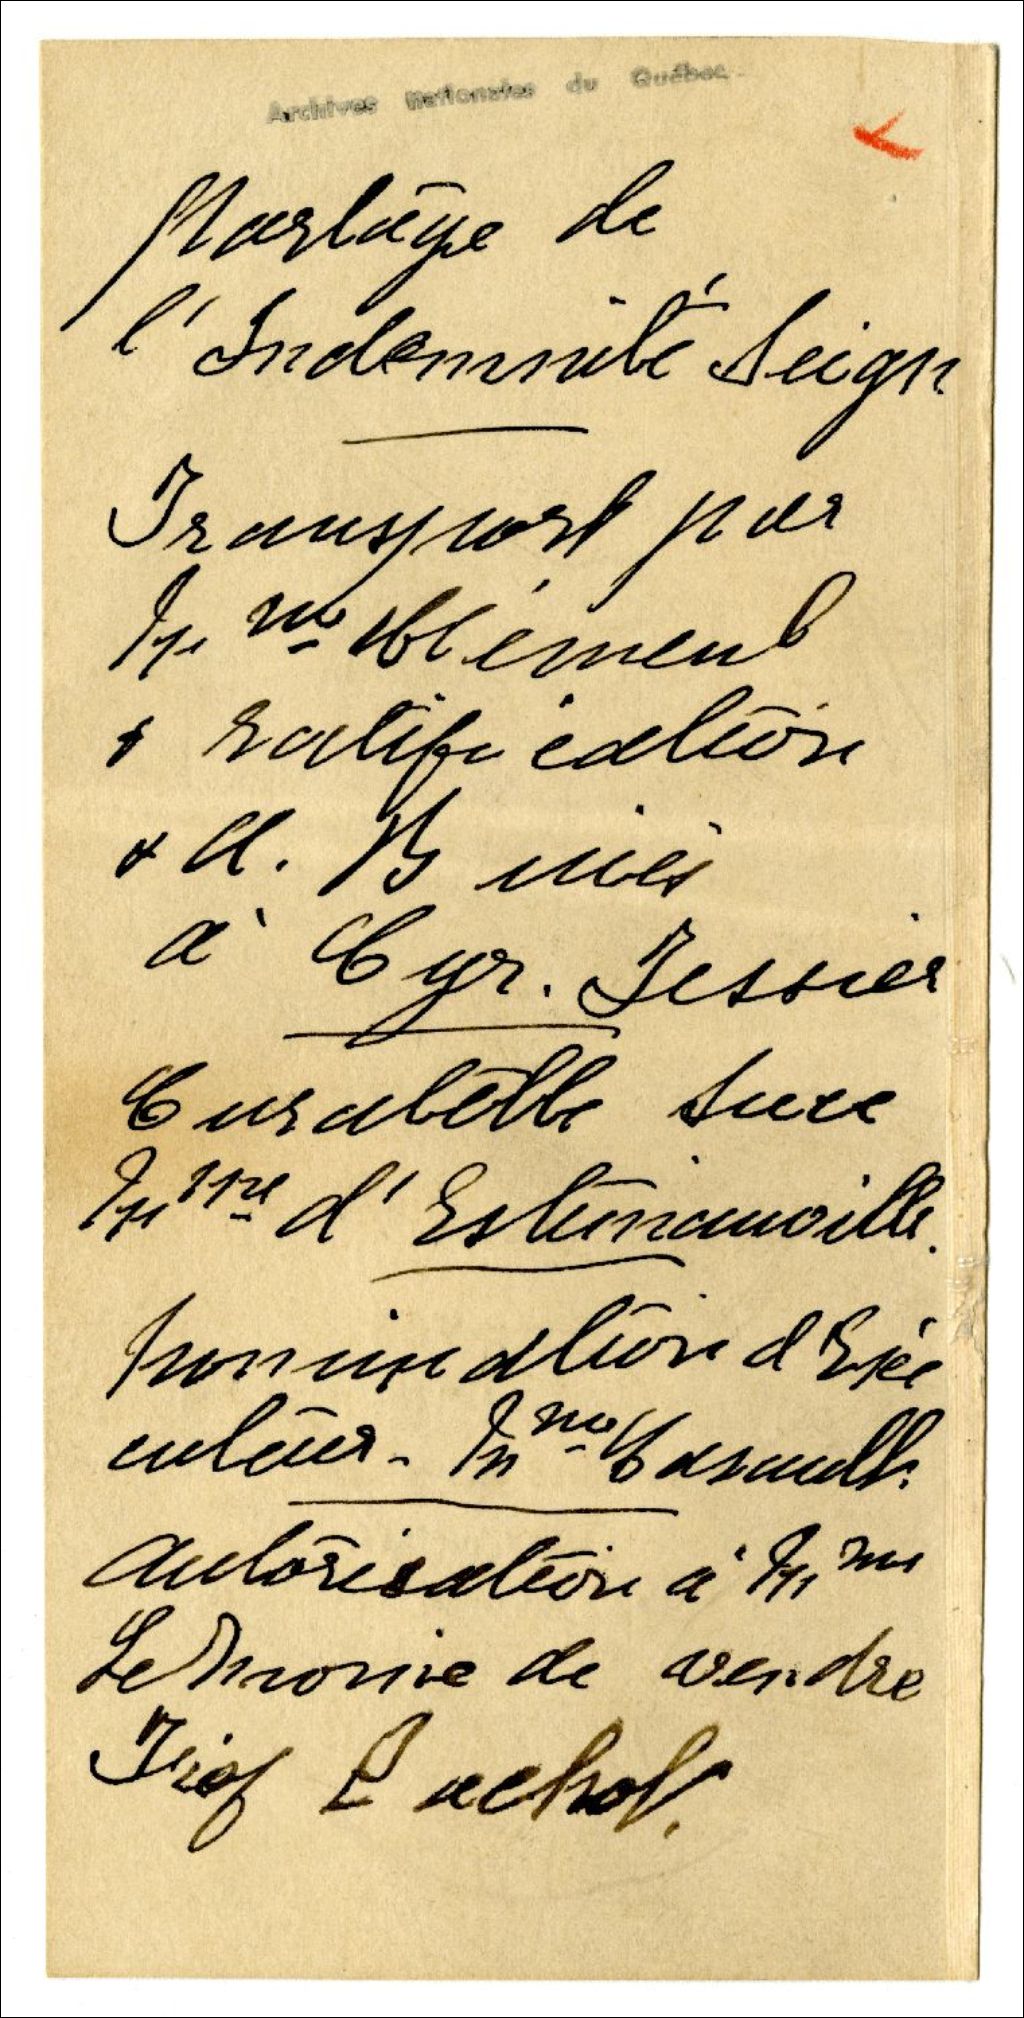 Archives Nationales du Québec
Partage de
l'Indemnité Seign
Transport par
Mme Clément
& ratification
& A. B
à Cyr. Tessier
Curatelle Succ
Mme d'Estimauville.
nomination d'Exé
cuteur - Mme Casault
autorisation à Mme
LeMoine de vendre
Fief Pachot.